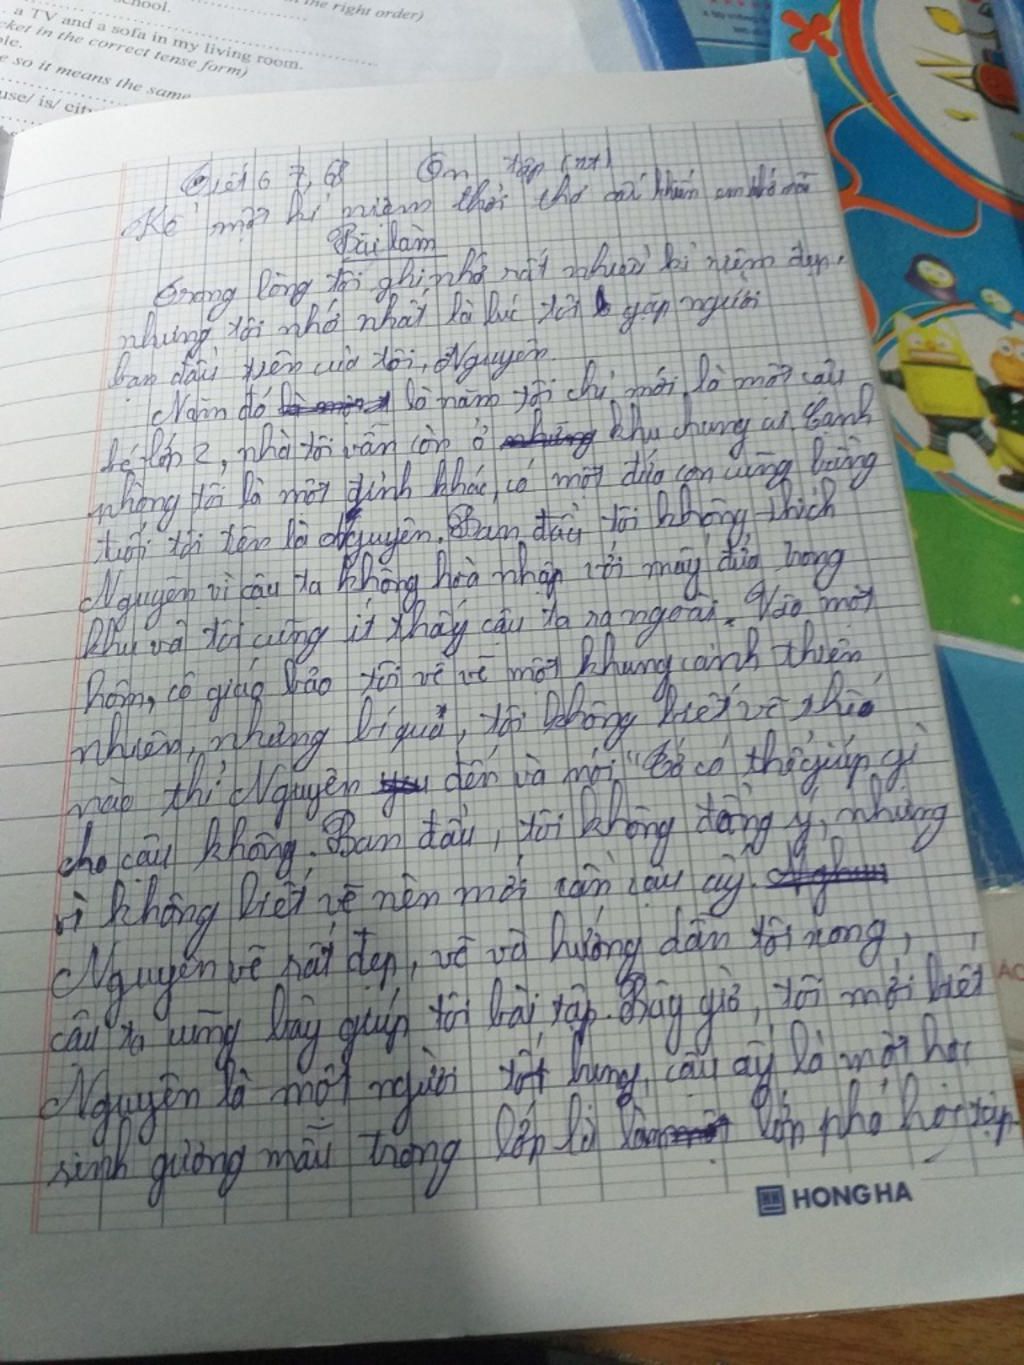 school.
in the right order)
a TV and a sofa in my living room.
cket in the correct tense form)
ole.
e so it means the same
use/ is/ city
Tiết 67, 68 Ôn tập (tt)
Kể một kỉ niệm thời thơ ấu khiến em nhớ mãi
Bài làm
Trong lòng tôi ghi nhớ rất nhiều kỉ niệm đẹp,
nhưng tôi nhớ nhất là lúc tôi gặp người
bạn đầu tiên của tôi, Nguyên.
Năm đó là năm tôi chỉ mới là một cậu
bé lớp 2, nhà tôi vẫn còn ở khu chung cư. Cạnh
phòng tôi là một gia đình khác, có một đứa con cũng bằng
tuổi tôi tên là Nguyên. Ban đầu tôi không thích
Nguyên vì cậu ta không hoà nhập với mấy đứa trong
khu và tôi cũng ít thấy cậu ta ra ngoài. Vào một
hôm, cô giáo bảo tôi về vẽ một khung cảnh thiên
nhiên, nhưng bí quá, tôi không biết vẽ thế
nào thì Nguyên đến và nói "Tớ có thể giúp gì
cho cậu không. Ban đầu, tôi không đồng ý, nhưng
vì không biết vẽ nên mới cần cậu ấy.
Nguyên vẽ rất đẹp, vẽ và hướng dẫn tôi xong,
cậu ta cũng bày giúp tôi bài tập. Bây giờ, tôi mới biết
Nguyên là một người tốt bụng, cậu ấy là một học
sinh gương mẫu trong lớp là lớp phó học tập
HONG HA